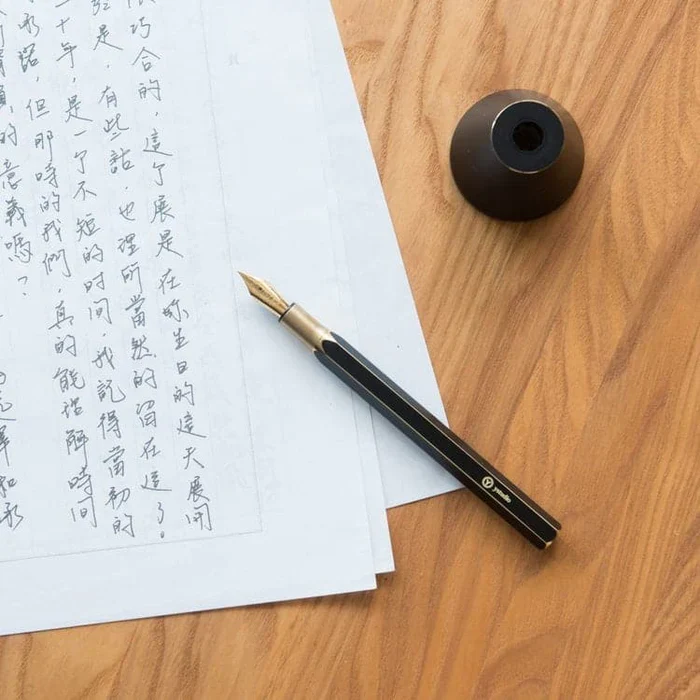 很巧合的,這个展是在你生日的這天展開
是,有些話,也理所當然的留在這了。
二十年,是一个不短的时间,我記得當初的
承諾,但那時的我們,真的能理解時间
的意義嗎?
擇和承
ystudio